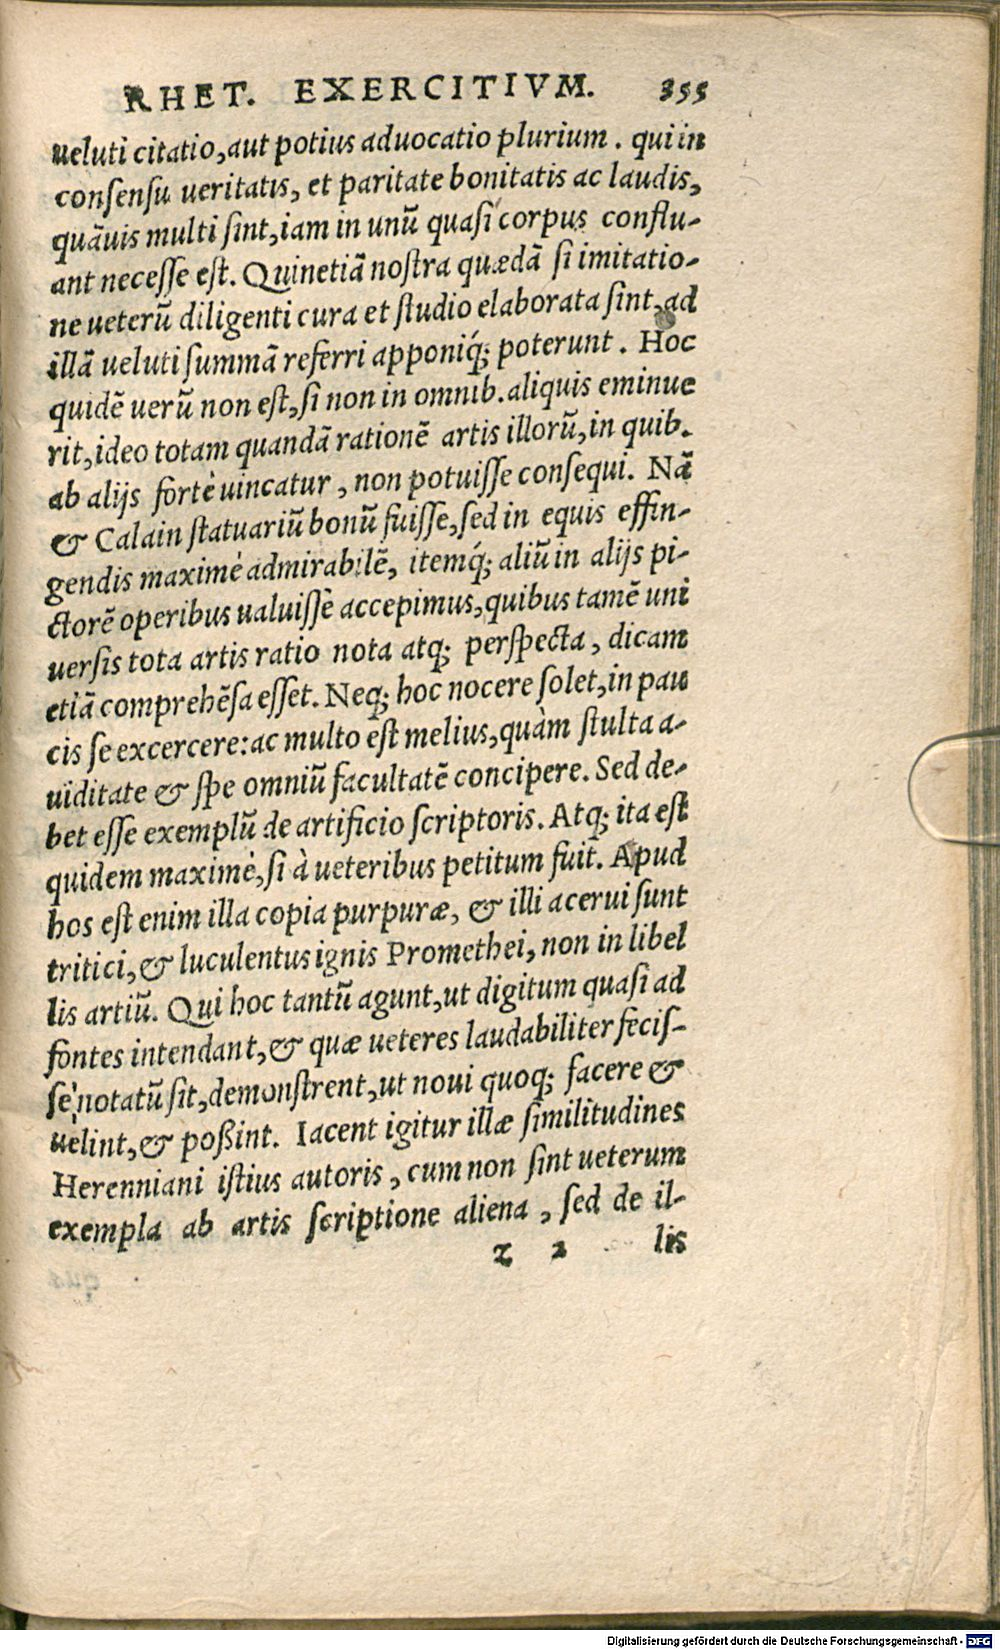 RHET. EXERCITIVM. 355
ueluti citatio, aut potius aduocatio plurium. qui in
consensu ueritatis, et paritate bonitatis ac laudis,
quãuis multi sint, iam in unũ quasi corpus conflu-
ant necesse est. Quinetiã nostra quædã si imitatio-
ne ueterũ diligenti cura et studio elaborata sint, ad
illã ueluti summã referri apponiq́; poterunt. Hoc
quidẽ uerũ non est, si non in omnib. aliquis eminue
rit, ideo totam quandã rationẽ artis illorũ, in quib.
ab alijs fortè uincatur, non potuisse consequi. Nã
& Calain statuariũ bonũ fuisse, sed in equis effin-
gendis maximè admirabilẽ, itemq́; aliũ in alijs pi-
ctorẽ operibus ualuisse accepimus, quibus tamẽ uni
uersis tota artis ratio nota atq; perspecta, dicam
etiã comprehẽsa esset. Neq; hoc nocere solet, in pau
cis se excercere: ac multo est melius, quàm stulta a-
uiditate & spe omniũ facultatẽ concipere. Sed de-
bet esse exemplũ de artificio scriptoris. Atq; ita est
quidem maximè, si à ueteribus petitum fuit. Apud
hos est enim illa copia purpuræ, & illi acerui sunt
tritici, & luculentus ignis Promethei, non in libel
lis artiũ. Qui hoc tantũ agunt, ut digitum quasi ad
fontes intendant, & quæ ueteres laudabiliter fecis-
se notatũ sit, demonstrent, ut noui quoq; facere &
uelint, & poßint. Iacent igitur illæ similitudines
Herenniani istius autoris, cum non sint ueterum
exempla ab artis scriptione aliena, sed de il-
z 2 lis
Digitalisierung gefördert durch die Deutsche Forschungsgemeinschaft - DFG